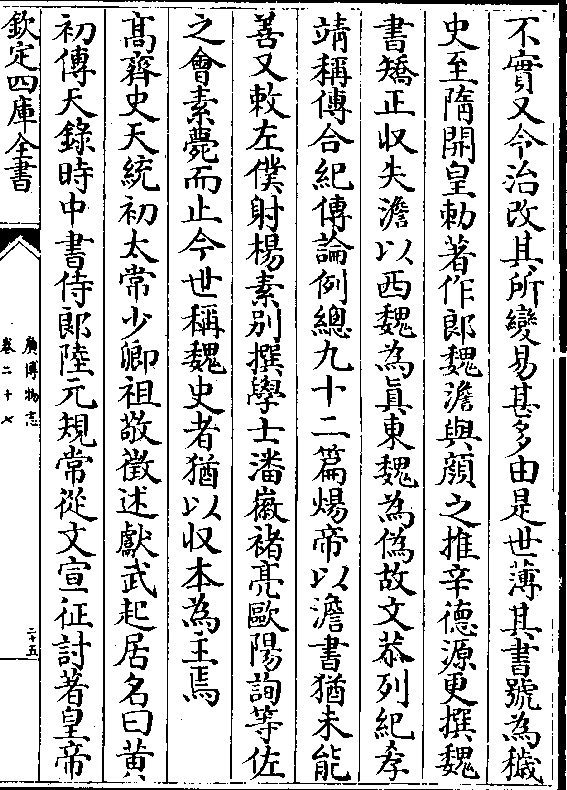 不實又令治改其所變易甚多由是世薄其書號為穢
史至隋開皇勅著作郎魏澹與顔之推辛德源更撰魏
書矯正収失澹以西魏為真東魏為偽故文恭列紀孝
靖稱傳合紀傳論例總九十二篇煬帝以澹書猶未能
善又敕左僕射楊素别撰學士潘徽褚亮歐陽詢等佐
之會素薨而止今世稱魏史者猶以収本為主焉
髙齊史天統初太常少卿祖敬徵述獻武起居名曰黄
初傳天錄時中書侍郎陸元規常從文宣征討著皇帝
欽定四庫全書
廣博物志
卷二十七
二十五